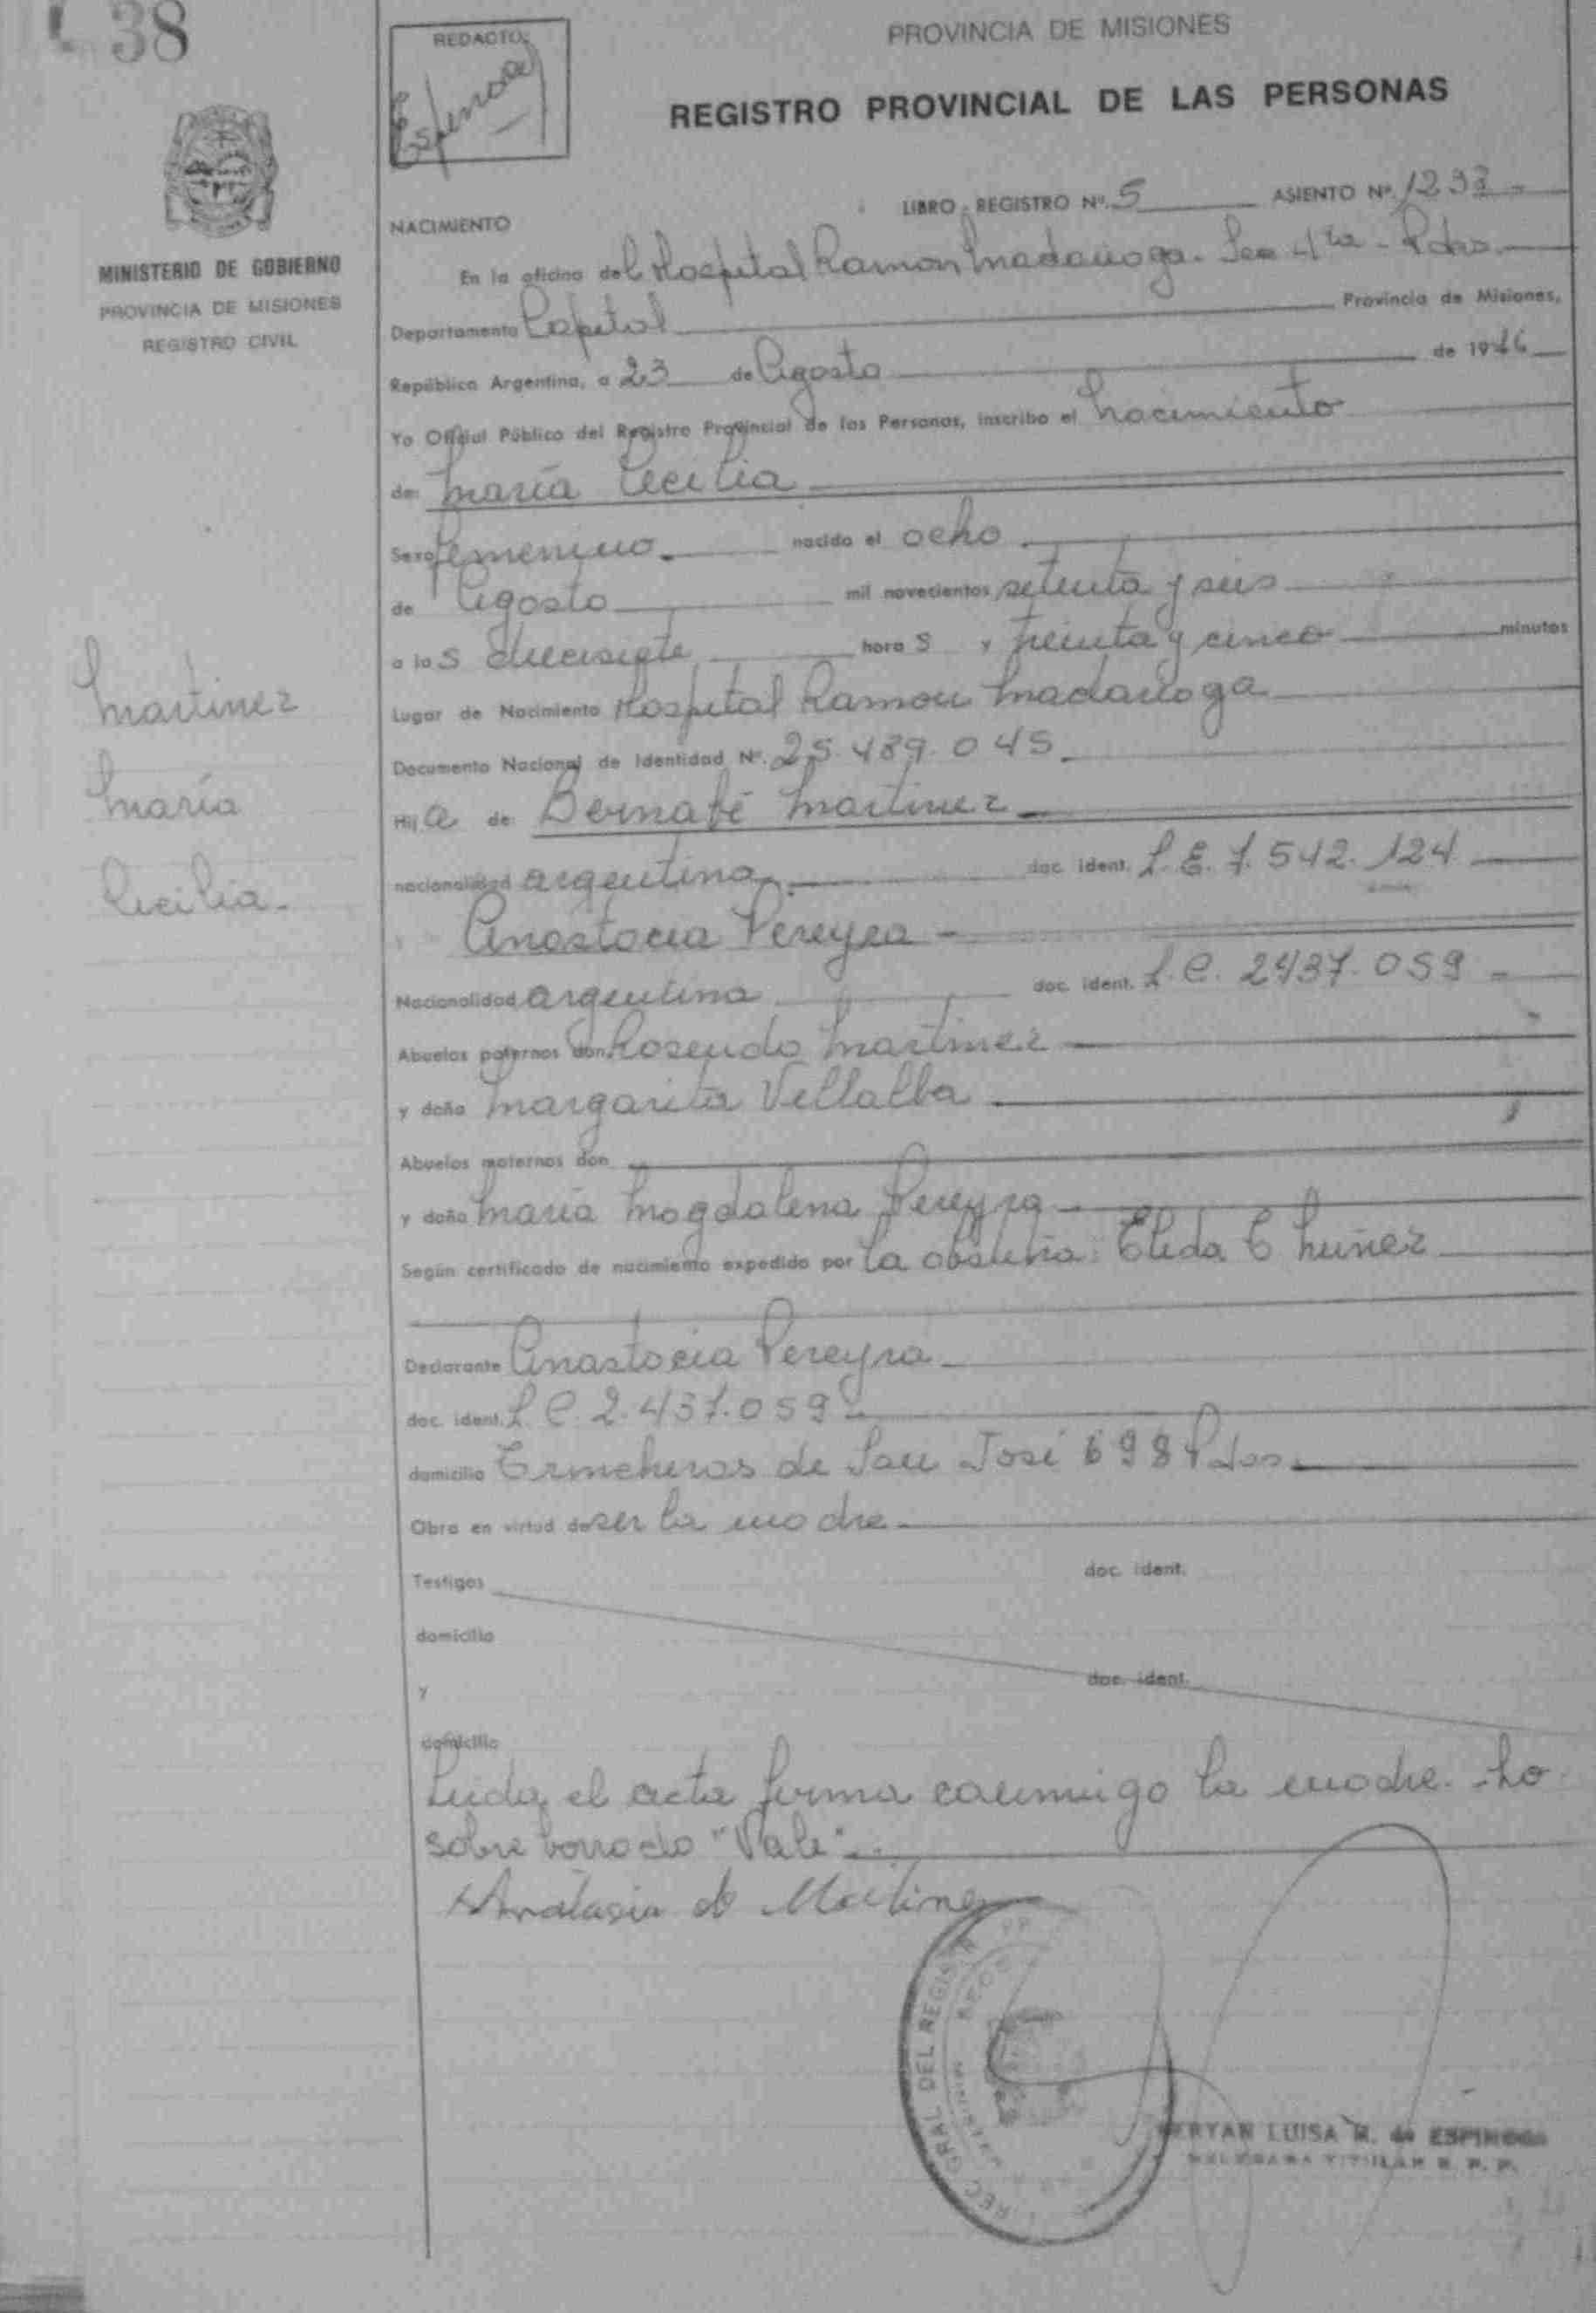 38
REDACTO:
Espinosa
PROVINCIA DE MISIONES
REGISTRO PROVINCIAL DE LAS PERSONAS
MINISTERIO DE GOBIERNO
PROVINCIA DE MISIONES
REGISTRO CIVIL
LIBRO REGISTRO Nº 5 ASIENTO Nº 1233 -
NACIMIENTO
En la oficina del Hospital Ramon Madariaga - Sec 4ta - Pdas.
Departamento Capital Provincia de Misiones,
República Argentina, a 23 de Agosto de 1976
Yo Oficial Público del Registro Provincial de las Personas, inscribo el nacimiento
de: María Cecilia
Sexo femenino. nacido el ocho
de Agosto mil novecientos setenta y seis
a las diecisiete horas y treinta y cinco minutos
Lugar de Nacimiento Hospital Ramon Madariaga
Documento Nacional de Identidad Nº. 25.489.045.
Hija de Bernabé Martinez
nacionalidad argentina doc. ident. L.E. 7.542.124
Anastacia Pereyra -
Nacionalidad argentina doc. ident. L.C. 2437.059 -
Abuelos paternos don Rosendo Martinez
y doña Margarita Villalba
Abuelos maternos don
y doña María Magdalena Pereyra
Según certificado de nacimiento expedido por la obstetra: Elida C Nuñez
Declarante Anastacia Pereyra
doc. ident. L.C. 2.437.059 -
domicilio Trincheras de San José 698 Pdas.
Obra en virtud de ser la madre
Testigos doc. ident.
domicilio
y doc. ident.
domicilio
Leida el acta firma conmigo la madre. -ho
sobre borrado "Vale" -
Anatasia de Martinez
Martinez
María
Cecilia -
GRAL DEL REGISTRO
LUISA M. de ESPINOSA
TITULAR R. P. P.